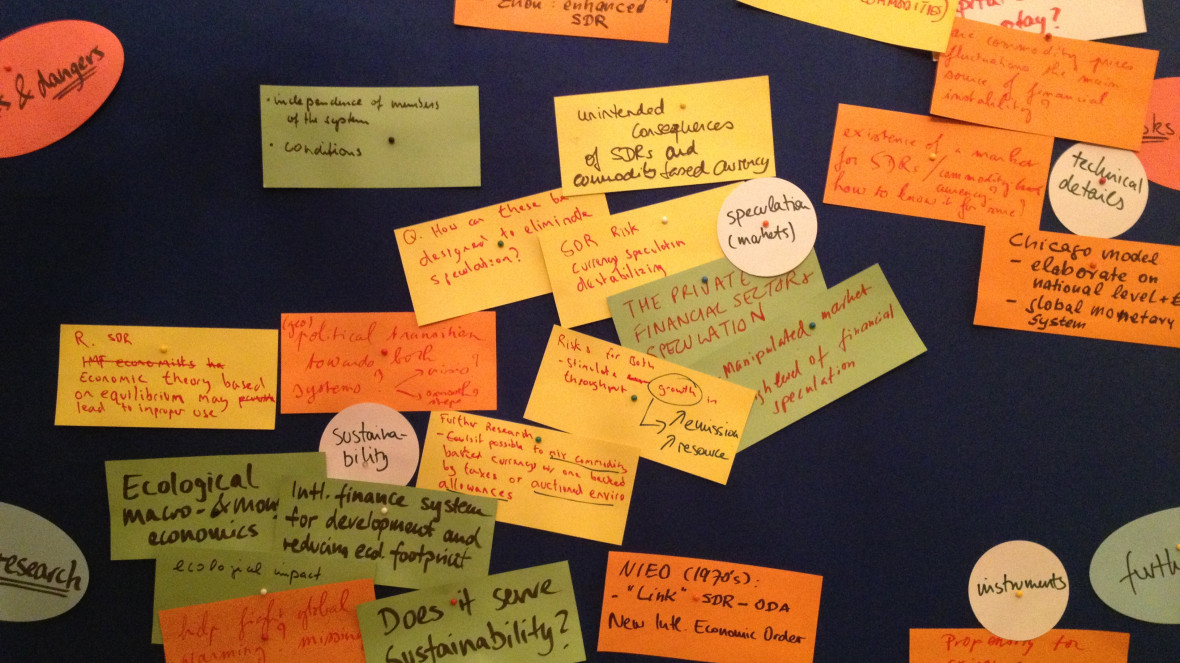 Zhou: enhanced
SDR
COMMODITIES)
today?
are commodity prices
fluctuations the main
source of financial
instability?
& dangers
• independence of members
of the system
• conditions
unintended
consequences
of SDRs and
commodity based currency
existence of a market
for SDRs/commodity
currency?
how to know it for sure?
technical
details
Q. How can these be
designed to eliminate
speculation?
SDR Risk
currency speculation
destabilizing
speculation
(markets)
THE PRIVATE
FINANCIAL SECTORS
SPECULATION
Manipulated market
ahead of financial
speculation
Chicago model
- elaborate on
national level +
- global monetary
system
R. SDR
IMF economists
Economic theory based
on equilibrium may
lead to improper use
(geo)
political transition
towards both
systems?
Risks for Both
- stimulate growth in
throughput
↗ emission
↗ resource
sustaina-
bility
Further Research
- Could it possible to mix commodity
basket currency w/ one backed
by taxes or auctioned enviro
allowances
Ecological
macro- &
economics
Intl. finance system
for development and
reducing ecol. footprint
ecological impact
help fight global
warming?
Does it serve
sustainability?
NIEO (1970's):
- "Link" SDR-ODA
New Intl. Economic Order
research
instruments
Propensity for